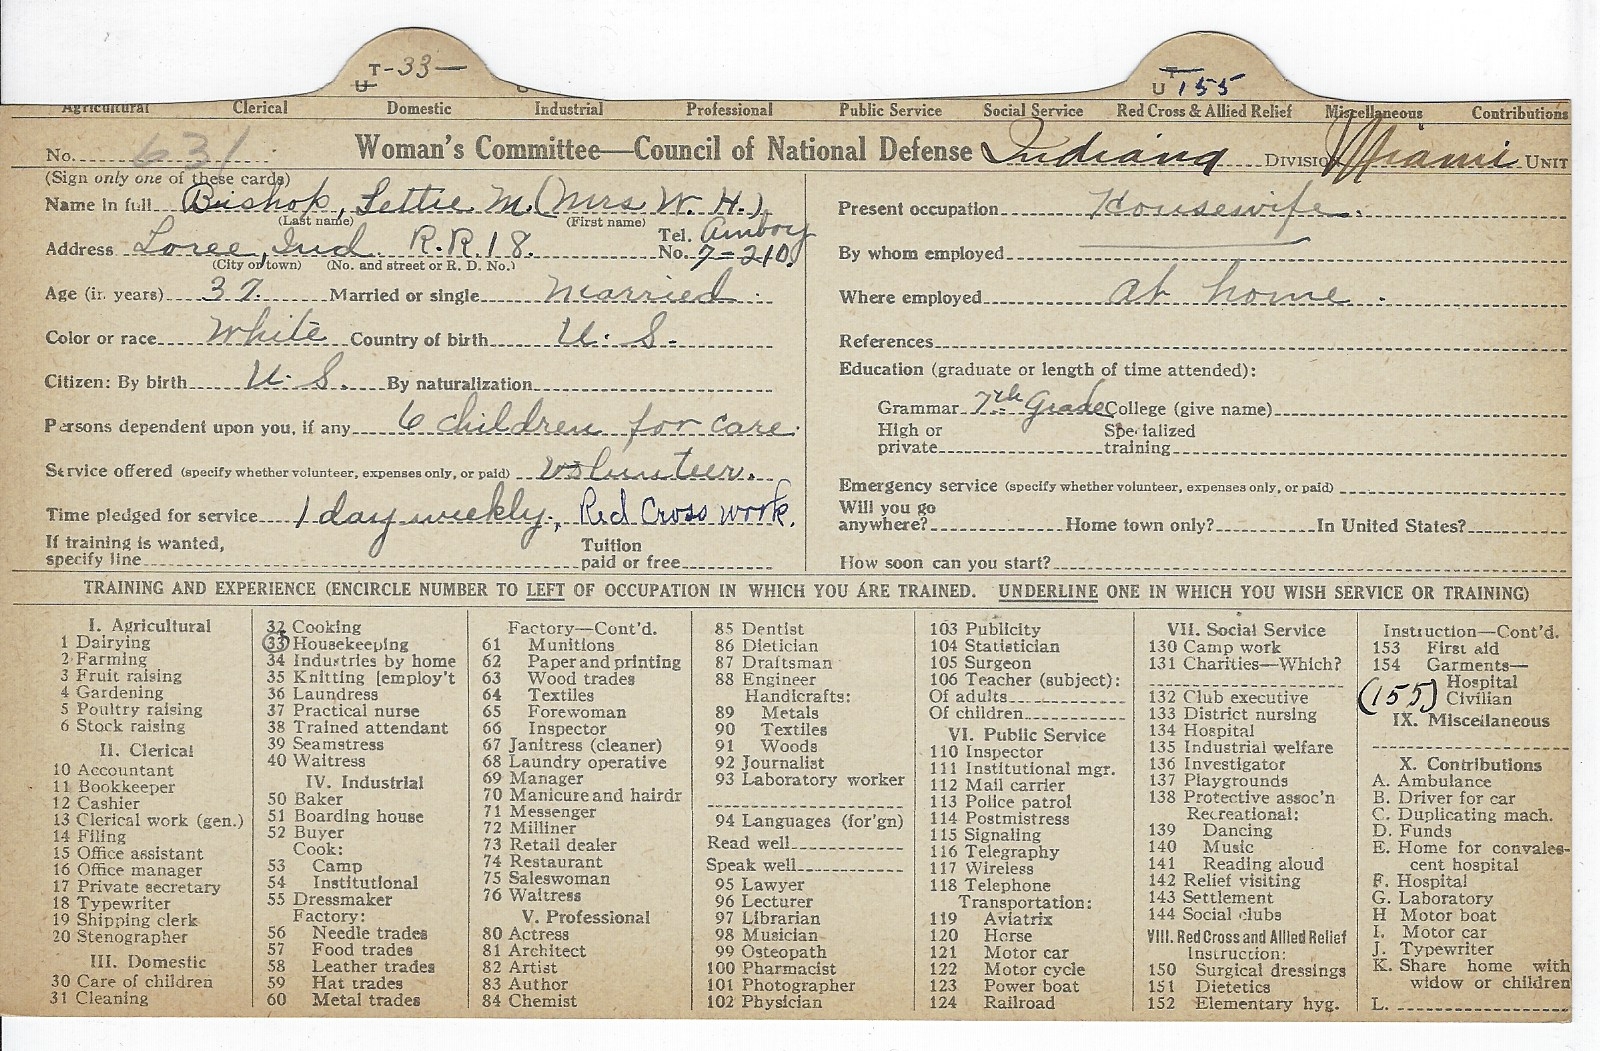 T-33-
U
T
U 155
Agricultural Clerical Domestic Industrial Professional Public Service Social Service Red Cross & Allied Relief Miscellaneous Contributions
No. 631 Woman's Committee—Council of National Defense Indiana Division Miami Unit
(Sign only one of these cards)
Name in full Bishop, Lettie M. (Mrs W. H.)
(Last name) (First name)
Address Loree, Ind. R.R. 18. Tel. No. Amboy 7-210
(City or town) (No. and street or R. D. No.)
Age (in years) 37. Married or single Married
Color or race White Country of birth U. S.
Citizen: By birth U. S. By naturalization
Persons dependent upon you, if any 6 children for care
Service offered (specify whether volunteer, expenses only, or paid) volunteer.
Time pledged for service 1 day weekly, Red Cross work.
If training is wanted, specify line Tuition paid or free
Present occupation Housewife.
By whom employed
Where employed at home.
References
Education (graduate or length of time attended):
Grammar 7th Grade College (give name)
High or private Specialized training
Emergency service (specify whether volunteer, expenses only, or paid)
Will you go anywhere? Home town only? In United States?
How soon can you start?
TRAINING AND EXPERIENCE (ENCIRCLE NUMBER TO LEFT OF OCCUPATION IN WHICH YOU ARE TRAINED. UNDERLINE ONE IN WHICH YOU WISH SERVICE OR TRAINING)
I. Agricultural
1 Dairying
2 Farming
3 Fruit raising
4 Gardening
5 Poultry raising
6 Stock raising
II. Clerical
10 Accountant
11 Bookkeeper
12 Cashier
13 Clerical work (gen.)
14 Filing
15 Office assistant
16 Office manager
17 Private secretary
18 Typewriter
19 Shipping clerk
20 Stenographer
III. Domestic
30 Care of children
31 Cleaning
32 Cooking
33 Housekeeping
34 Industries by home
35 Knitting [employ't
36 Laundress
37 Practical nurse
38 Trained attendant
39 Seamstress
40 Waitress
IV. Industrial
50 Baker
51 Boarding house
52 Buyer
Cook:
53 Camp
54 Institutional
55 Dressmaker
Factory:
56 Needle trades
57 Food trades
58 Leather trades
59 Hat trades
60 Metal trades
Factory—Cont'd.
61 Munitions
62 Paper and printing
63 Wood trades
64 Textiles
65 Forewoman
66 Inspector
67 Janitress (cleaner)
68 Laundry operative
69 Manager
70 Manicure and hairdr
71 Messenger
72 Milliner
73 Retail dealer
74 Restaurant
75 Saleswoman
76 Waitress
V. Professional
80 Actress
81 Architect
82 Artist
83 Author
84 Chemist
85 Dentist
86 Dietician
87 Draftsman
88 Engineer
Handicrafts:
89 Metals
90 Textiles
91 Woods
92 Journalist
93 Laboratory worker
94 Languages (for'gn)
Read well
Speak well
95 Lawyer
96 Lecturer
97 Librarian
98 Musician
99 Osteopath
100 Pharmacist
101 Photographer
102 Physician
103 Publicity
104 Statistician
105 Surgeon
106 Teacher (subject):
Of adults
Of children
VI. Public Service
110 Inspector
111 Institutional mgr.
112 Mail carrier
113 Police patrol
114 Postmistress
115 Signaling
116 Telegraphy
117 Wireless
118 Telephone
Transportation:
119 Aviatrix
120 Horse
121 Motor car
122 Motor cycle
123 Power boat
124 Railroad
VII. Social Service
130 Camp work
131 Charities—Which?
132 Club executive
133 District nursing
134 Hospital
135 Industrial welfare
136 Investigator
137 Playgrounds
138 Protective assoc'n
Recreational:
139 Dancing
140 Music
141 Reading aloud
142 Relief visiting
143 Settlement
144 Social clubs
VIII. Red Cross and Allied Relief
Instruction:
150 Surgical dressings
151 Dietetics
152 Elementary hyg.
Instruction—Cont'd.
153 First aid
154 Garments—
Hospital
(155) Civilian
IX. Miscellaneous
X. Contributions
A. Ambulance
B. Driver for car
C. Duplicating mach.
D. Funds
E. Home for convales-
cent hospital
F. Hospital
G. Laboratory
H Motor boat
I. Motor car
J. Typewriter
K. Share home with
widow or children
L.